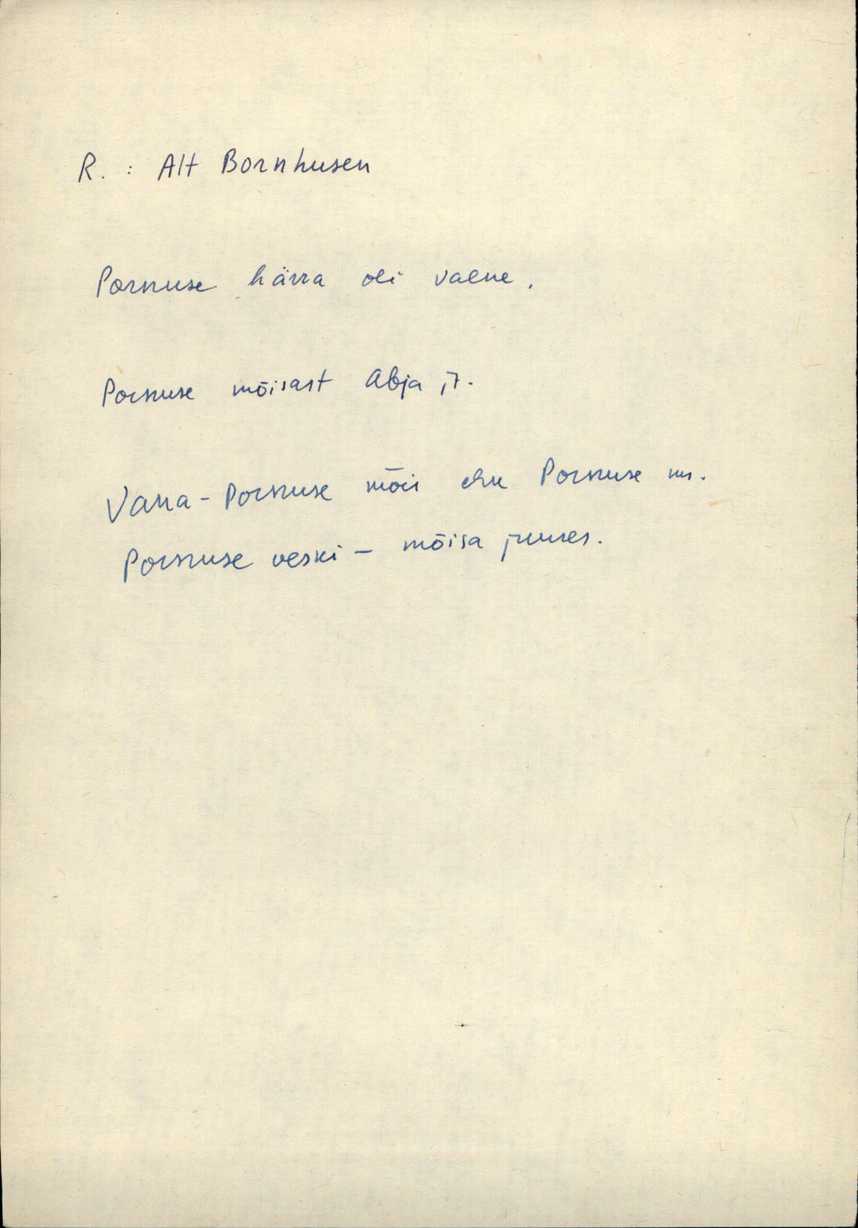 R. : Alt Bornhusen
Pornuse härra oli valne.
Pornuse mõisast Abja j.
Vana-Pornuse mõis ehk Pornuse m.
Pornuse veski - mõisa juures.